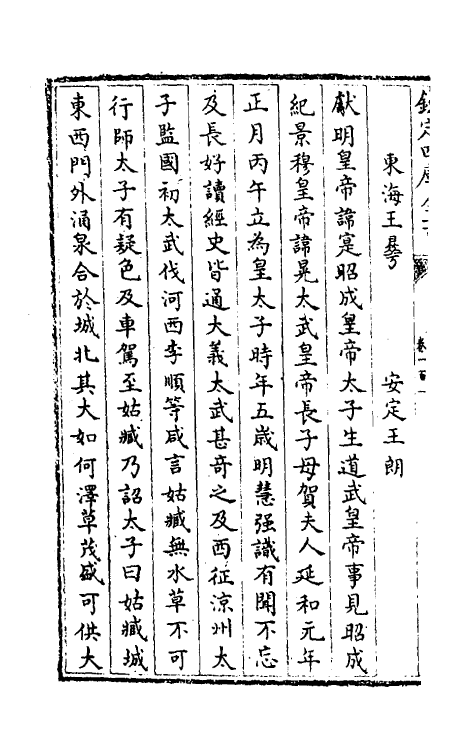 欽定四庫全書 卷一百一
東海王曅 安定王朗
獻明皇帝諱寔昭成皇帝太子生道武皇帝事見昭成
紀景穆皇帝諱晃太武皇帝長子母賀夫人延和元年
正月丙午立為皇太子時年五歲明慧强識有聞不忘
及長好讀經史皆通大義太武甚奇之及西征涼州太
子監國初太武伐河西李順等咸言姑臧無水草不可
行師太子有疑色及車駕至姑臧乃詔太子曰姑臧城
東西門外涌泉合於城北其大如何澤草茂盛可供大